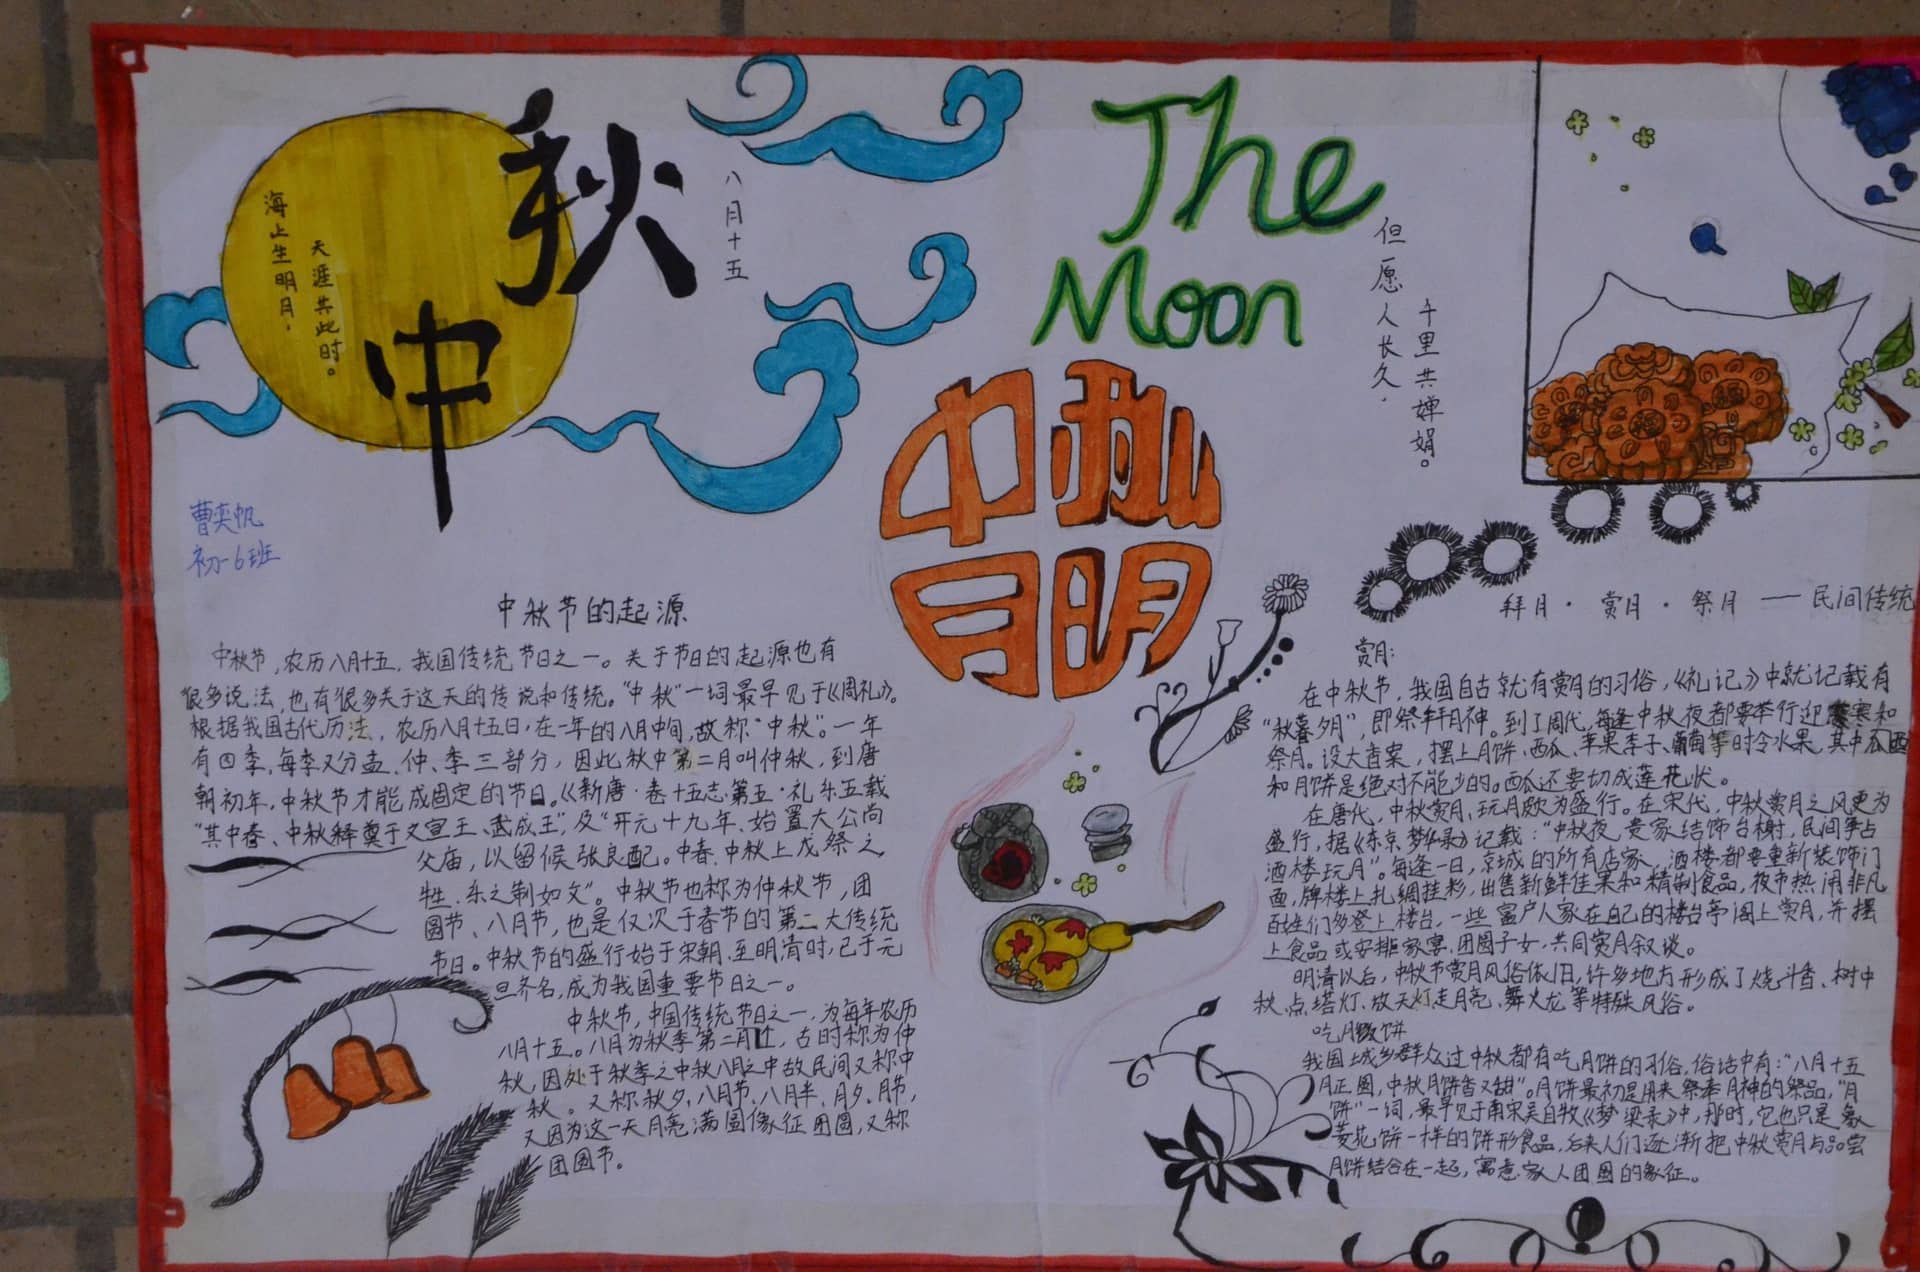 中秋
海上生明月，
天涯共此时。
八月十五
The
Moon
但愿人长久，
千里共婵娟。
中秋
明月
曹奕帆
初一6班
中秋节的起源
中秋节，农历八月十五，我国传统节日之一。关于节日的起源也有
很多说法，也有很多关于这天的传说和传统。“中秋”一词最早见于《周礼》。
根据我国古代历法，农历八月十五日，在一年的八月中旬，故称“中秋”。一年
有四季，每季又分孟、仲、季三部分，因此秋中第二月叫仲秋，到唐
朝初年，中秋节才能成固定的节日。《新唐·卷十五志·第五·礼乐五载
“其中春、中秋释奠于文宣王、武成王”，及“开元十九年、始置大公尚
父庙，以留候张良配。中春、中秋上戊祭之，
牲、乐之制如文”。中秋节也称为仲秋节，团
圆节、八月节，也是仅次于春节的第二大传统
节日。中秋节的盛行始于宋朝，至明清时，已于元
旦齐名，成为我国重要节日之一。
中秋节，中国传统节日之一，为每年农历
八月十五。八月为秋季第二月，古时称为仲
秋，因处于秋季之中秋八月之中故民间又称中
秋。又称秋夕，八月节、八月半、月夕、月节，
又因为这一天月亮满圆像征团圆，又称
团圆节。
拜月·赏月·祭月——民间传统
赏月：
在中秋节，我国自古就有赏月的习俗，《礼记》中就记载有
“秋暮夕月”，即祭拜月神。到了周代，每逢中秋夜都要举行迎寒和
祭月。设大香案，摆上月饼、西瓜、苹果李子、葡萄等时令水果，其中
和月饼是绝对不能少的。西瓜还要切成莲花状。
在唐代，中秋赏月，玩月颇为盛行。在宋代，中秋赏月之风更为
盛行，据《东京梦华录》记载：“中秋夜，贵家结饰台榭，民间争占
酒楼玩月”。每逢一日，京城的所有店家，酒楼都要重新装饰门
面，牌楼上扎绸挂彩，出售新鲜佳果和精制食品，夜市热闹非凡
百姓们多登上楼台，一些富户人家在自己的楼台亭阁上赏月，并摆
上食品或安排家宴，团圆子女，共同赏月叙谈。
明清以后，中秋节赏月风俗依旧，许多地方形成了烧斗香、树中
秋、点塔灯、放天灯走月亮、舞火龙等特殊风俗。
吃月饼
我国城乡群众过中秋都有吃月饼的习俗，俗话中有：“八月十五
月正圆，中秋月饼香又甜”。月饼最初是用来祭奉月神的祭品，“月
饼”一词，最早见于南宋吴自牧《梦梁录》中，那时，它也只是象
菱花饼一样的饼形食品，后来人们逐渐把中秋赏月与品尝
月饼结合在一起，寓意家人团圆的象征。